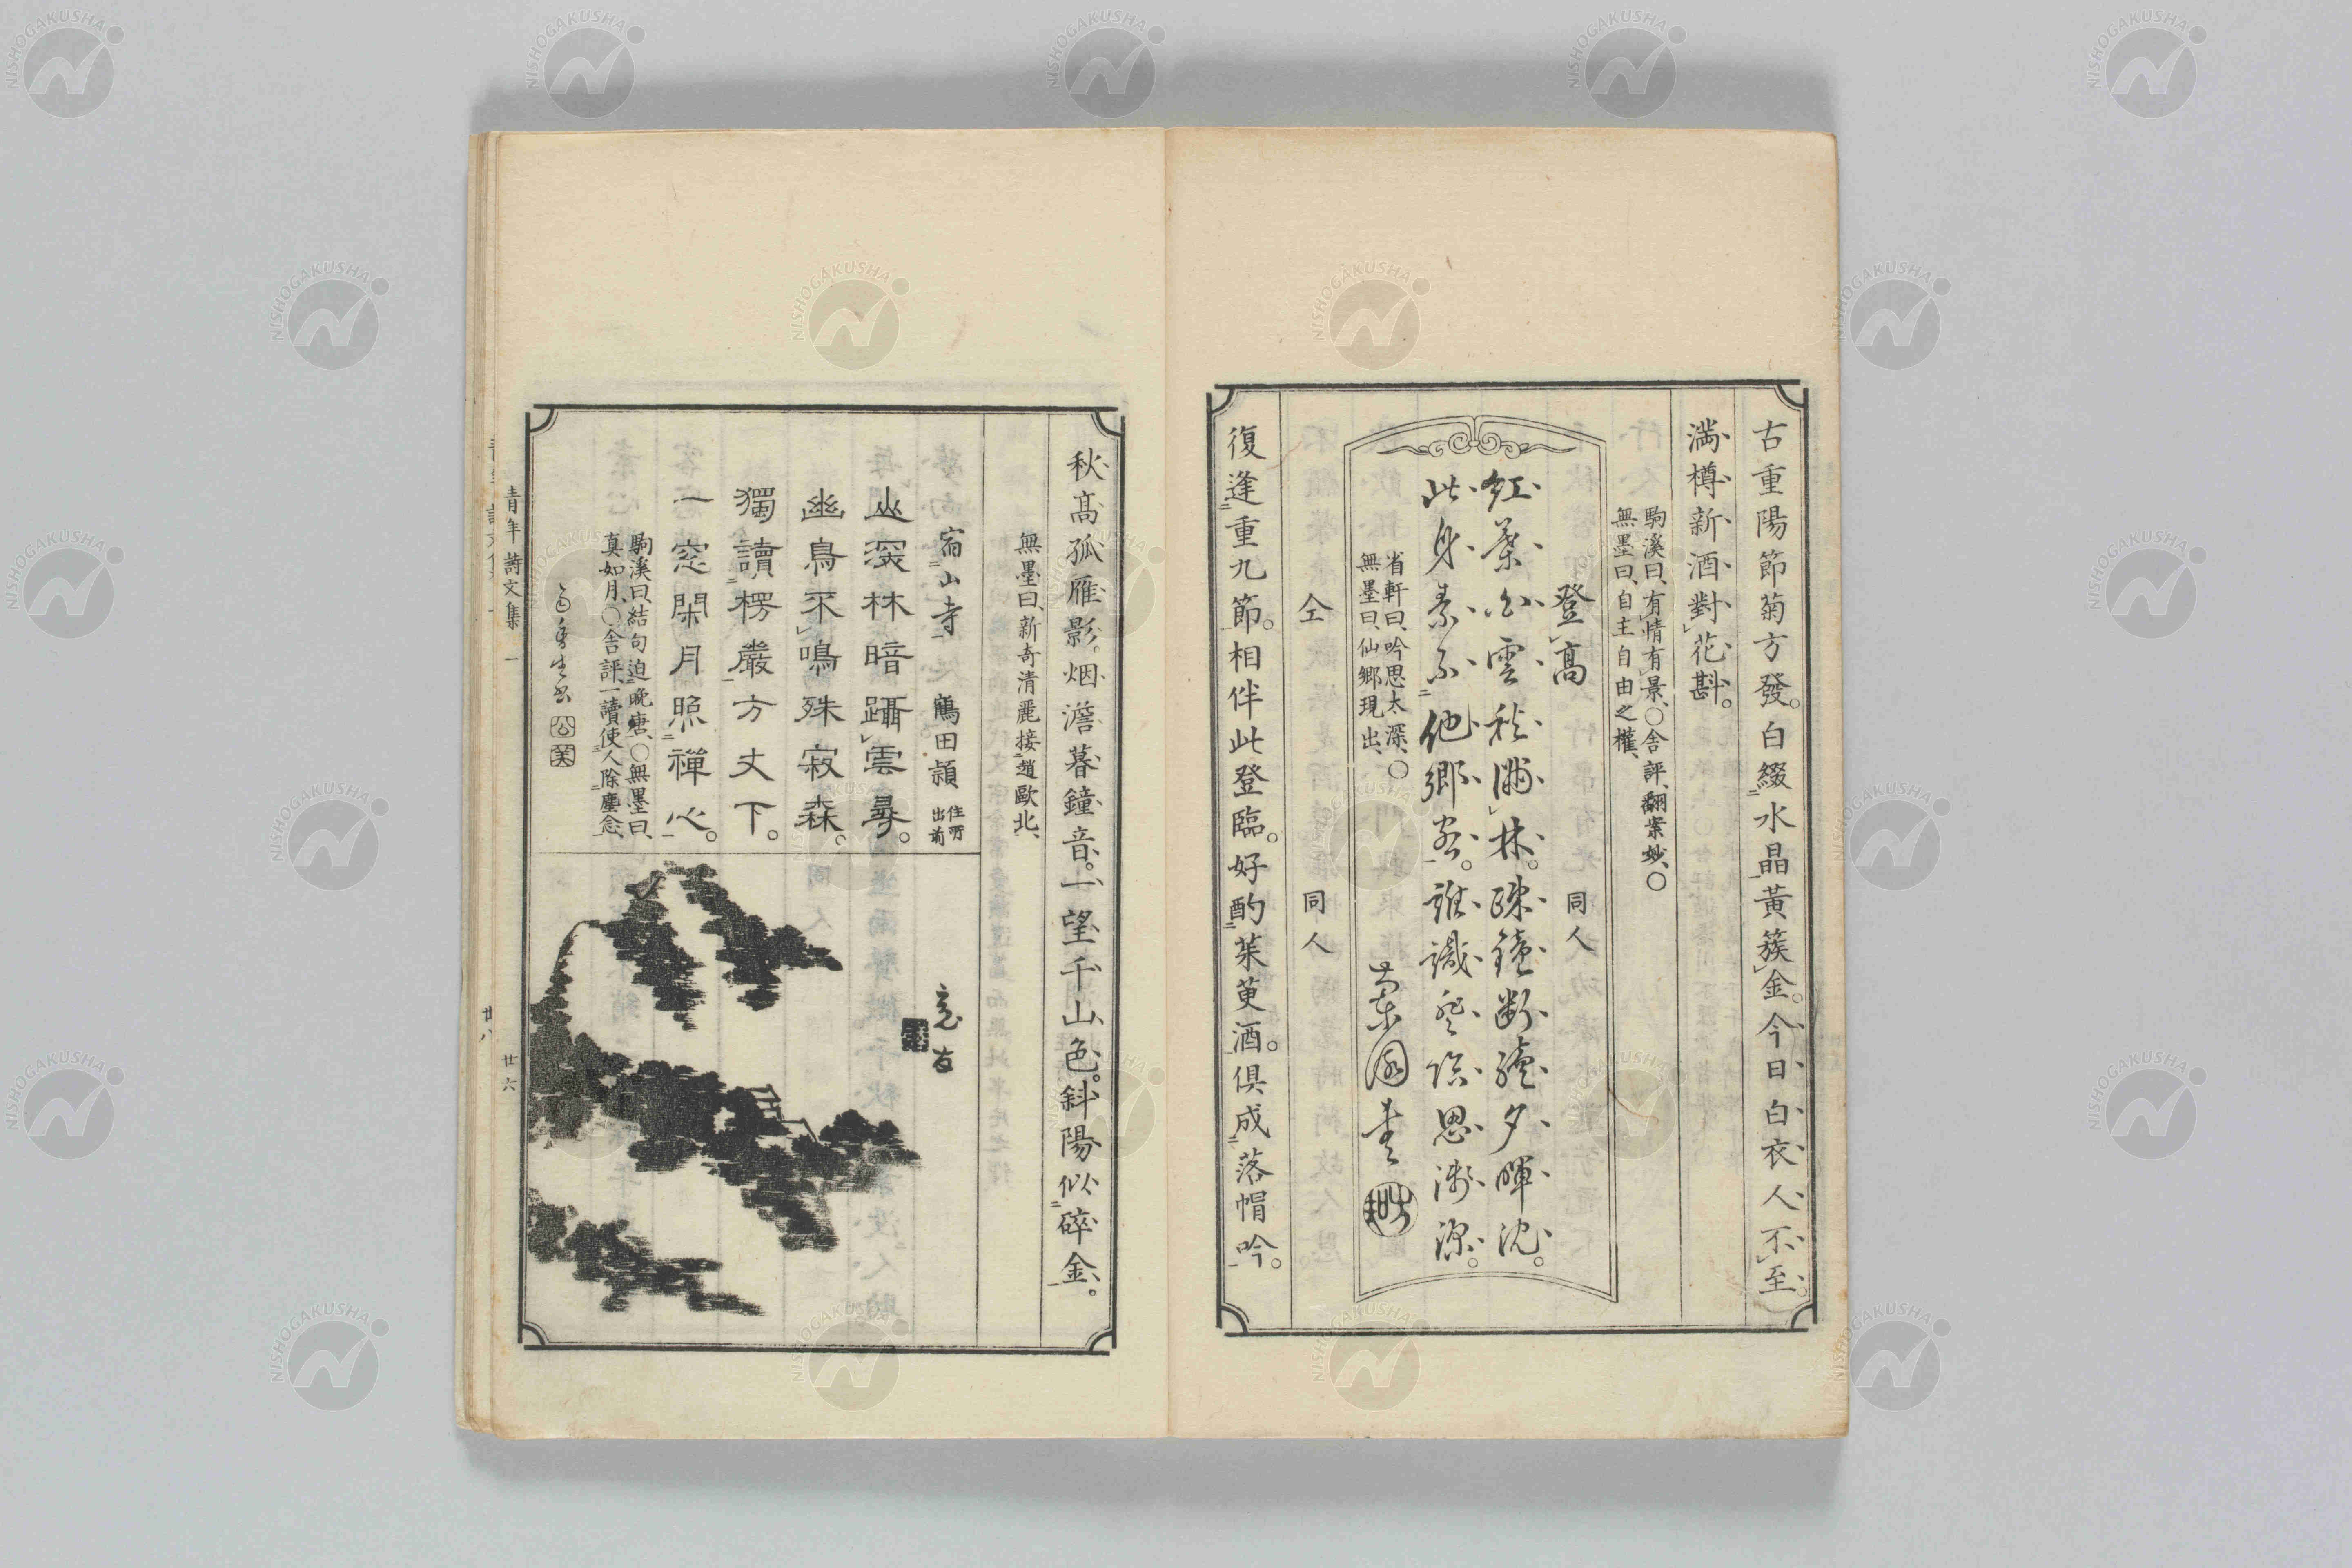 古重陽節菊方發。白綴水晶黃簇金。今日白衣人不至。
滿樽新酒對花斟。
駒溪曰、有情有景、〇舎評、翻案妙、〇
無墨曰、自主自由之權、
登高 同人
紅葉白雲秋満林。疎鐘斷續夕暉沈。
此身素不他鄉客。誰識登臨思漸深。
省軒曰、吟思太深、〇
無墨曰、仙鄉現出、
仝 同人
復逢重九節。相伴此登臨。好酌茱萸酒。俱成落帽吟。
秋高孤雁影。烟澹暮鐘音。一望千山色。斜陽似碎金。
無墨曰、新奇清麗接趙歐北、
宿山寺 鶴田頴 住所出前
山深林暗躡雲尋。
幽鳥不鳴殊寂森。
獨讀楞嚴方丈下。
一窓閑月照禪心。
駒溪曰、結句迫晚唐、〇無墨曰、
真如月、〇舎評、一讀使人除塵念、
青年詩文集 一
廿六
廿八
NISHOGAKUSHA